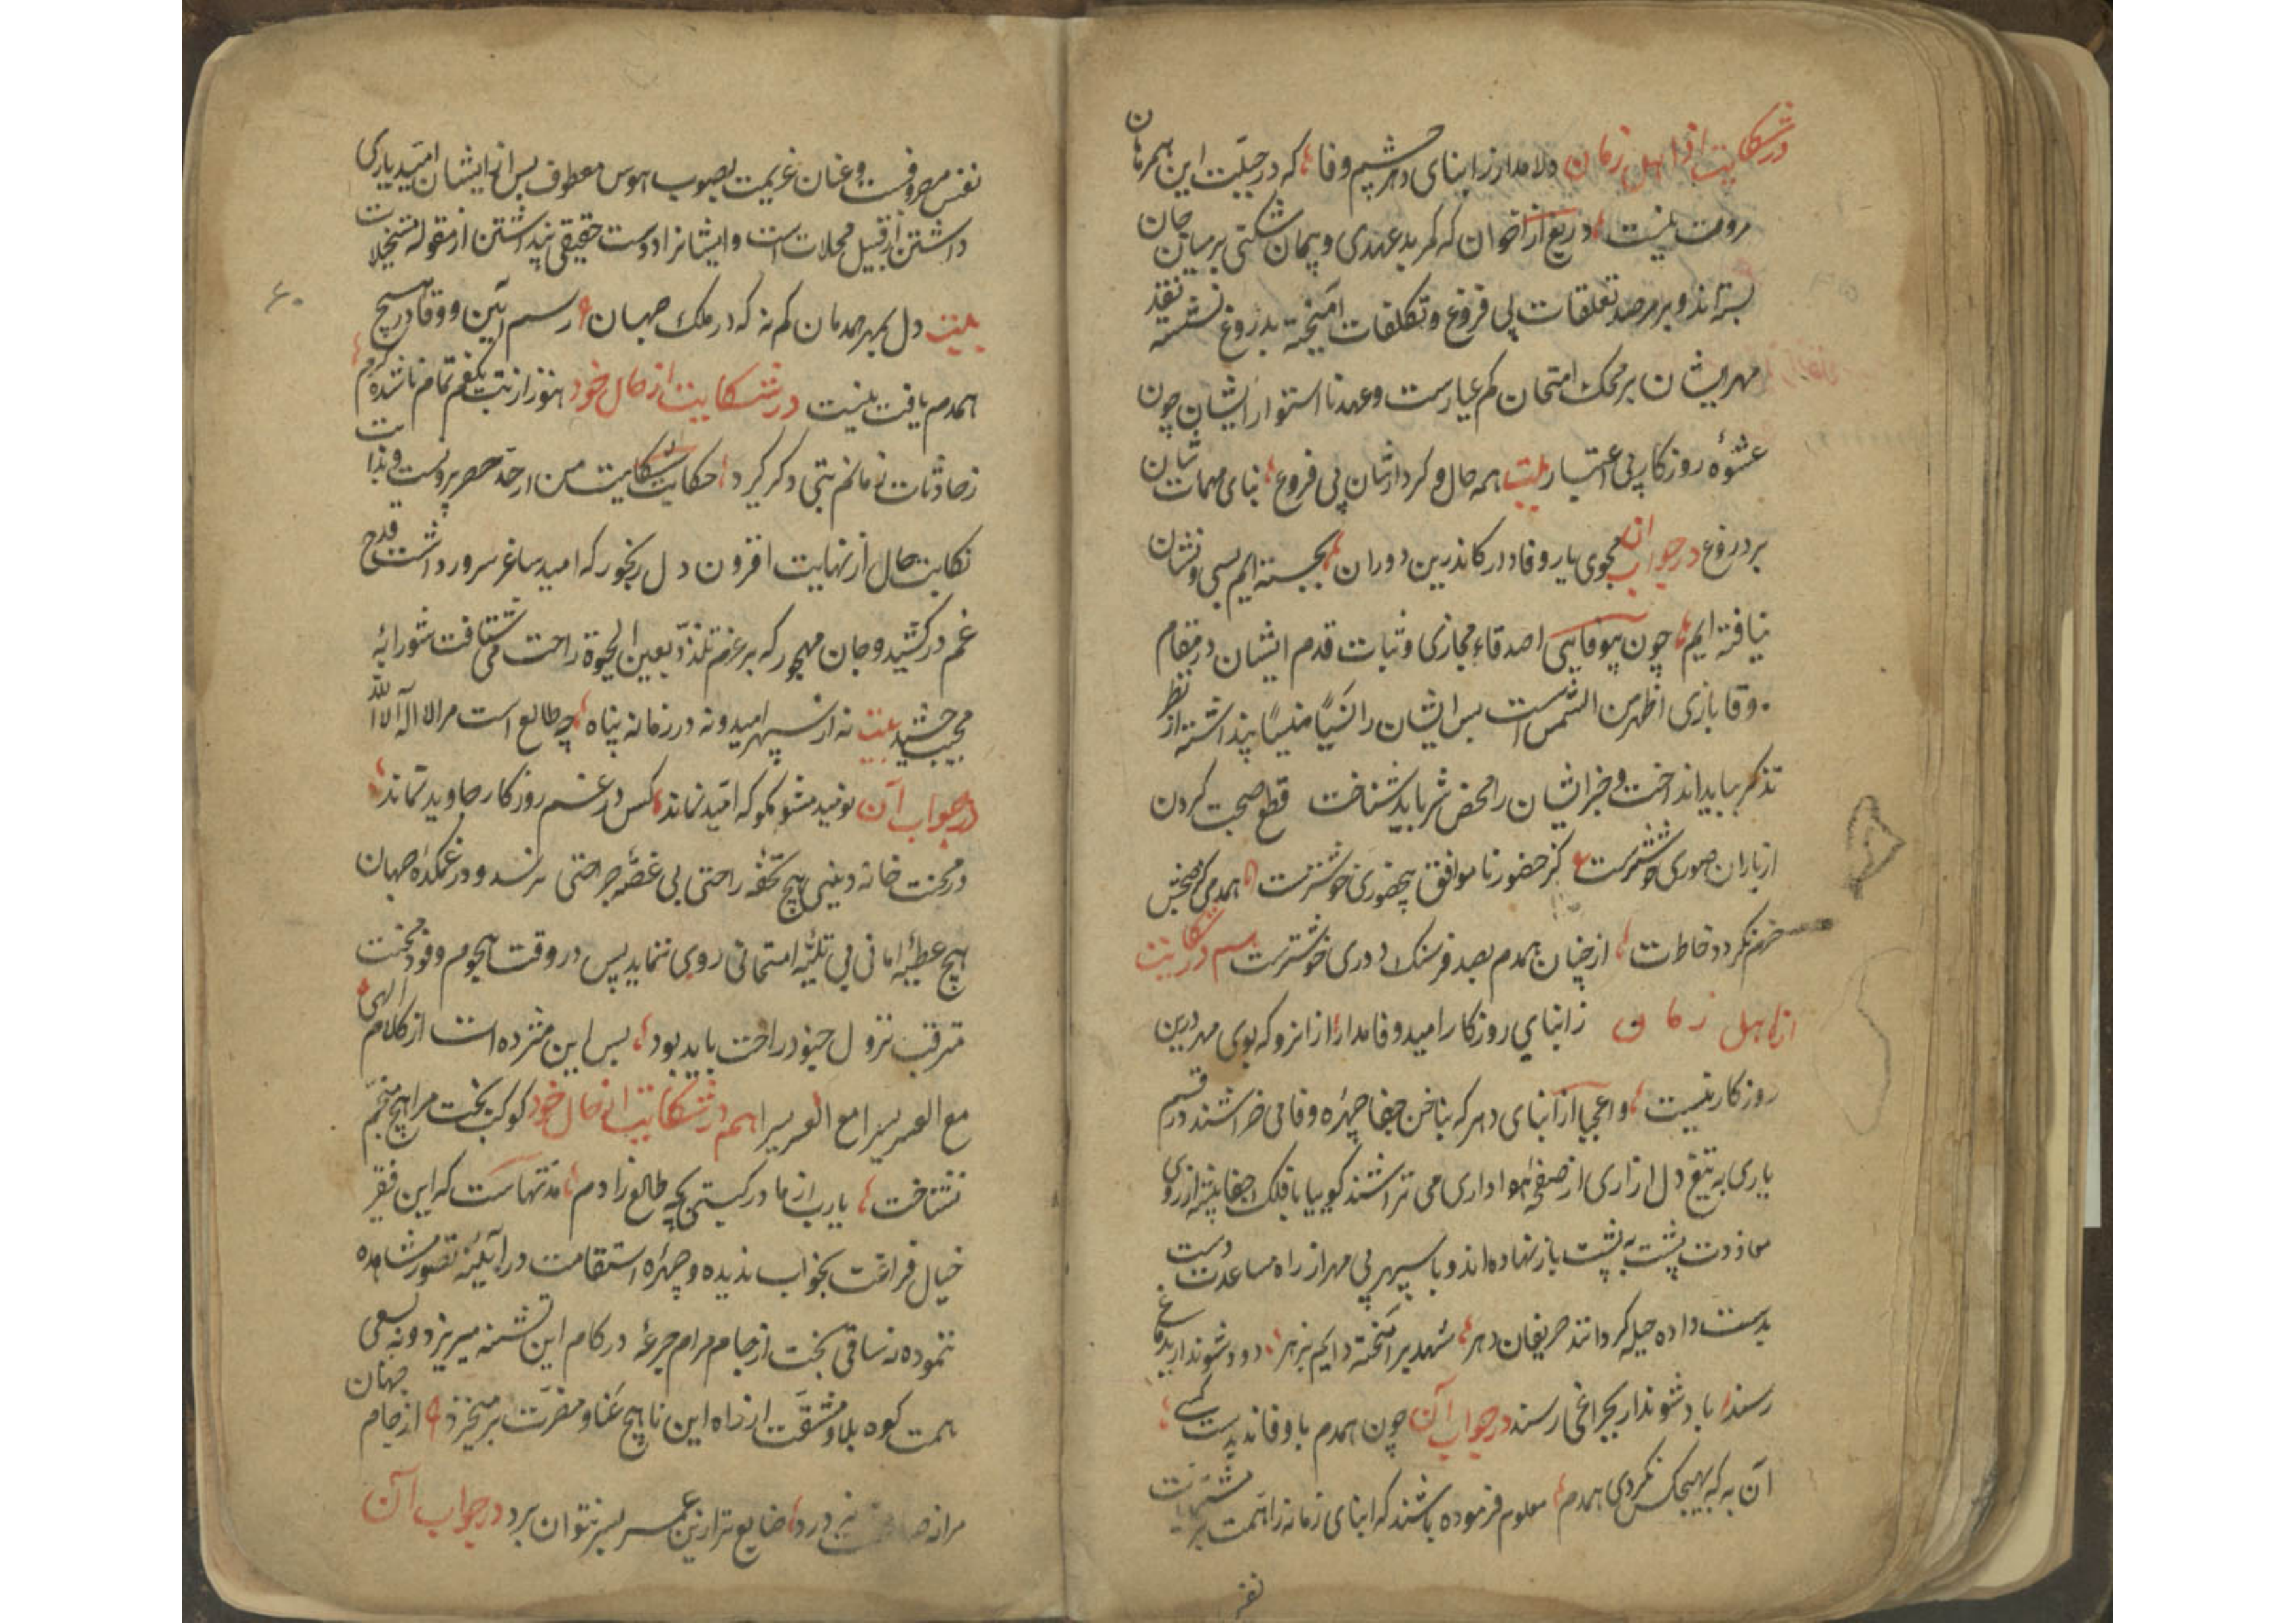 در شکایت از اهل زمان دلا مدار ز ابنای دهر چشم وفا که در جبلّت این همرهان
مروت نیست دریغ از اخوان که کمر بدعهدی و پیمان شکنی بر میان جان
بسته‌اند و بر مرصد تعلقات بی فروغ و تکلفات آمیخته بدروغ نشسته نقد
مهر ایشان بر محک امتحان کم عیارست و عهد نااستوار ایشان چون
عشوهٔ روزکار بی اعتبار بیت همه حال و کردارشان بی فروغ بنای مهمات شان
بر دروغ در جواب آن مجوی یار وفادار کاندرین دوران بجسته‌ایم بسی و نشان
نیافته ایم چون بیوفایی اصدقاء مجازی و ثبات قدم ایشان در مقام
وقا بازی اظهر من الشمس است پس ایشان را نسیًا منسیًا پنداشته از نظر
تذکر بباید انداخت و خیر ایشان را محض شر باید شناخت قطع صحبت کردن
از یاران صوری خوشترست کز حضور ناموافق بیحضوری خوشترست همدمی کز صحبتش
خرم نکردد خاطرت از چنان همدم بصد فرسنک دوری خوشترست هم در شکایت
از اهل زمان ز ابنای روزکار امید وفا مدار از انرو که بوی مهر درین
روزکار نیست واعجبا از ابنای دهر که بناخن جفا چهرهٔ وفا می خراشند و رقم
یاری به تیغ دل ازاری از صفحهٔ هواداری می تراشند کوییا با فلک جفا پیشه از روی
معاودت پشت به پشت باز نهاده‌اند و با سپهر بی مهر از راه مساعدت دست
بدست داده حیله کردانند حریفان دهر شهد برآمیخته دایم بزهر دود شوند ار بدماغی
رسند باد شوند ار بچراغی رسند در جواب آن چون همدم باوفا ندیدست کسی
آن به که بهیچکس نکردی همدم معلوم فرموده باشند که ابنای زمانه را همت بر مشتهیات
نفس
نفس مصروفست و عنان عزیمت بصوب هوس معطوف پس از ایشان امید یاری
داشتن از قبیل محالات است و ایشانرا دوست حقیقی پنداشتن از مقوله مستحیلات
بیت دل بمهر همدمان کم نه که در ملک جهان رسم آیین و وفا در هیچ
همدم یافت نیست در شکایت از حال خود هنوز از تب یکغم تمام ناشده کرم
ز حادثات زمانم تبی دکر کیرد حکایت شکایت من از حد حصر بیرونست و بدایت
نکایت حال از نهایت افزون دل رنجور که امید ساغر سرور داشت قدح
غم درکشید و جان مهجور که بر عزم تلذذ بعین الحیوة راحت می شتافت شورابهٔ
چشید بیت نه از سپهر امید و نه در زمانه پناه چه طالع است مرا لا اله الا الله
در جواب آن نومید مشو مکو که امید نماند کس در غم روزکار جاوید نماند
در محنت خانه دینی هیچ تحفه راحتی بی غصهٔ جراحتی نرسد و در غمکدهٔ جهان
هیچ عطیهٔ امانی بی تلیهٔ امتحانی روی ننماید پس در وقت هجوم وفود محنت
مترقب نزول جنود راحت باید بود پس این مژده است از کلام الهی
مع العسر یسرا مع العسر یسرا هم در شکایت از حال خود کوکب بخت مرا هیچ منجم
نشناخت یارب از مادر کیتی بچه طالع زادم مدتهاست که این فقیر
خیال فراغت بخواب ندیده و چهرهٔ استقامت در آیینهٔ تصور مشاهده
ننموده نه ساقی بخت از جام مرام جرعهٔ در کام این تشنه میریزد و نه بسعی
همت کوه بلا و مشقت از راه این ناهیچ عنا و مضرت برمیخیزد از جام جهان
مرا نه ضایع تر ازین عمر بسر نتوان برد در جواب آن